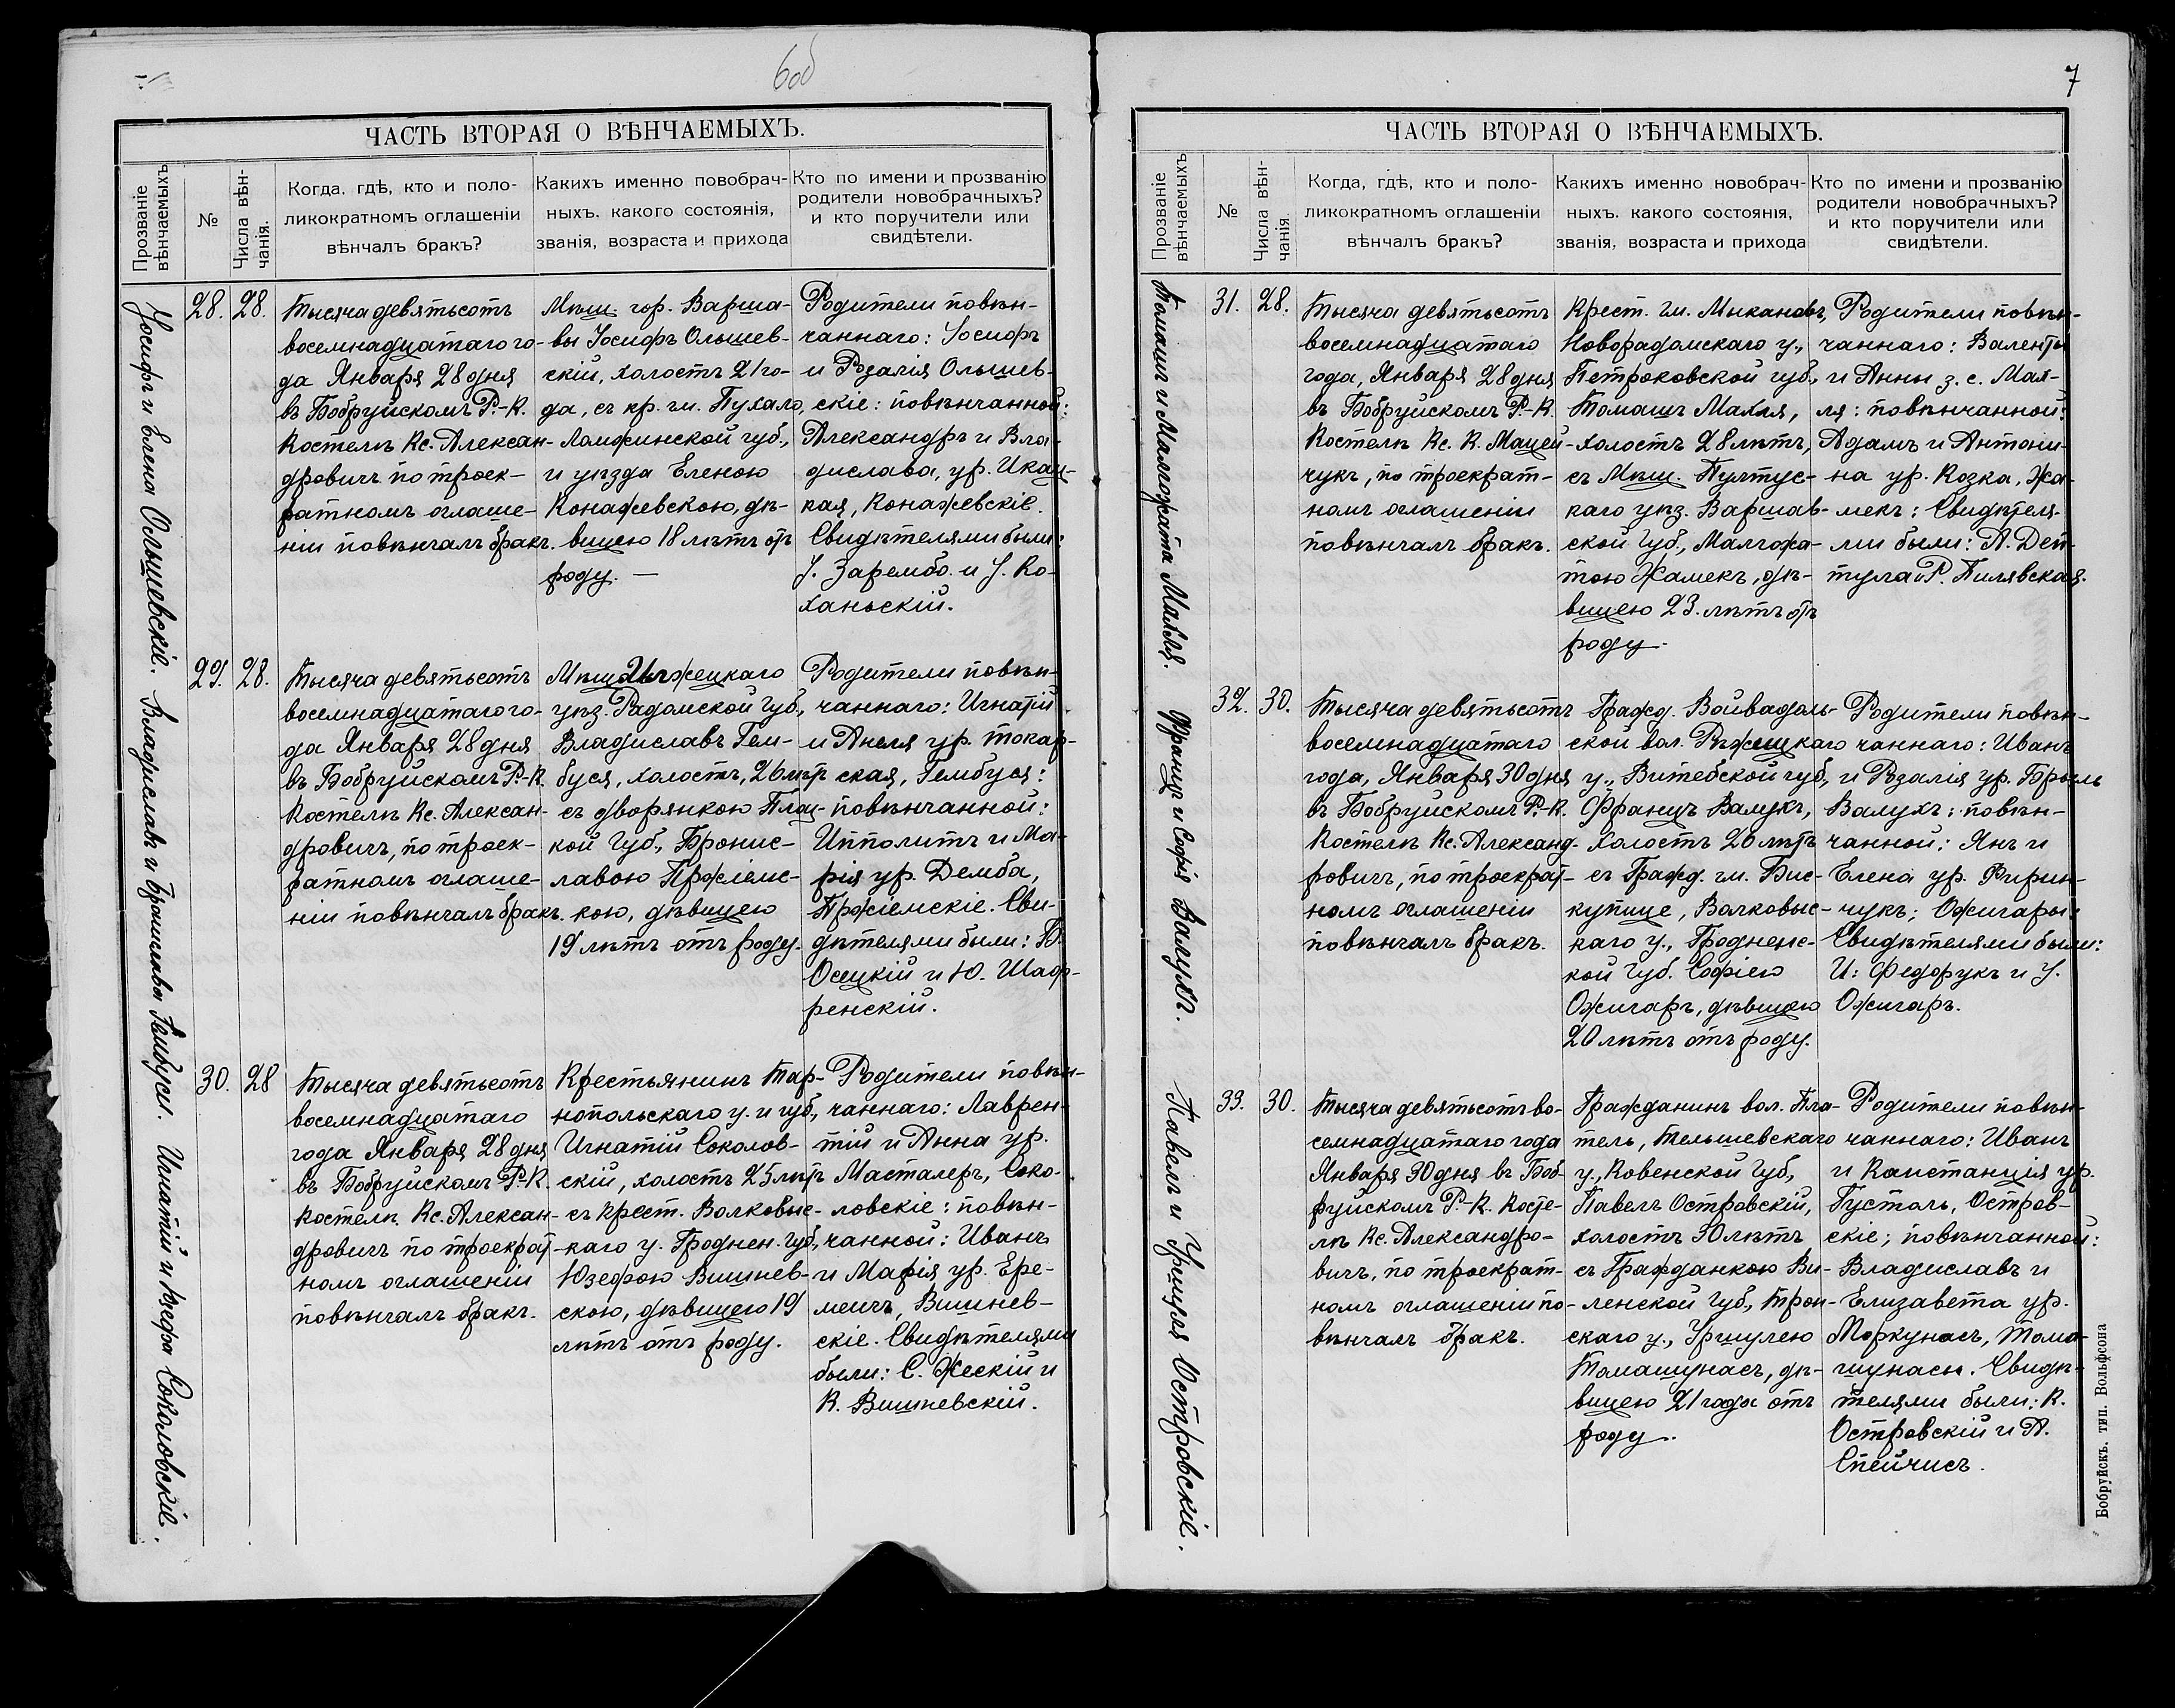 6об
ЧАСТЬ ВТОРАЯ О ВѢНЧАЕМЫХЪ.
Прозваніе
вѣнчаемыхъ
№
Числа вѣн-
чанія.
Когда, гдѣ, кто и поло-
ликократномъ оглашеніи
вѣнчалъ бракъ?
Какихъ именно повобрач-
ныхъ, какого состоянія,
званія, возраста и прихода
Кто по имени и прозванію
родители новобрачныхъ?
и кто поручители или
свидѣтели.
Іосифъ и Елена Ольшевскіе.
28.
28.
Тысяча девятьсотъ
восемнадцатаго го-
да Января 28 дня
въ Бобруйскомъ Р.-К.
Костелѣ Кс. Алексан-
дровичъ по троек-
ратномъ оглаше-
ніи повѣнчалъ бракъ.
Мѣщ. гор. Варша-
вы Іосифъ Ольшев-
скій, холостъ 21 го-
да, съ кр. гм. Пухало,
Ломжинской губ.,
и уѣзда Еленою
Конажевскою, дѣ-
вицею 18 лѣтъ отъ
роду. —
Родители повѣн-
чаннаго: Іосифъ
и Розалія Ольшев-
скіе: повѣнчанной:
Александръ и Вла-
дислава, ур. Икац-
кая, Конажевскіе.
Свидѣтелями были:
І. Зарембо. и І. Ко-
ханьскій.
Владиславъ и Брониславы Гембуся.
29.
28.
Тысяча девятьсотъ
восемнадцатаго го-
да Января 28 дня
въ Бобруйскомъ Р.-К.
Костелѣ Кс. Алексан-
дровичъ, по троек-
ратномъ оглаше-
ніи повѣнчалъ бракъ.
Мѣщ. Илжецкаго
уѣз. Радомской Губ.,
Владиславъ Гем-
буся, холостъ, 26 лѣтъ
съ дворянкою Плоц-
кой Губ., Бронис-
лавою Пржіемс-
кою, дѣвицею
19 лѣтъ отъ роду.
Родители повѣн-
чаннаго: Игнатій
и Анеля ур. Токар-
ская, Гембуся:
повѣнчанной:
Ипполитъ и Ма-
рія ур. Демба,
Пржіемскіе. Сви-
дѣтелями были: В.
Осецкій и Ю. Шаф-
ренскій.
Игнатій и Юзефа Соколовскіе.
30.
28
Тысяча девятьсотъ
восемнадцатаго
года Января 28 дня
въ Бобруйскомъ Р.-К.
Костелѣ. Кс. Алексан-
дровичъ по троекрат-
номъ оглашеніи
повѣнчалъ бракъ.
Крестьянинъ Тар-
нопольскаго у. и губ.,
Игнатій Соколов-
скій, холостъ 25 лѣтъ
съ крест. Волковыс-
каго у. Гроднен. Губ.,
Юзефою Вишнев-
скою, дѣвицею 19
лѣтъ отъ роду.
Родители повѣн-
чаннаго: Лаврен-
тій и Анна ур.
Масталеръ, Соко-
ловскіе: повѣн-
чанной: Иванъ
и Марія ур. Ере-
мичъ, Вишнев-
скіе. Свидѣтелями
были: С. Жескій и
К. Вишневскій.
7
ЧАСТЬ ВТОРАЯ О ВѢНЧАЕМЫХЪ.
Прозваніе
вѣнчаемыхъ
№
Числа вѣн-
чанія
Когда, гдѣ, кто и поло-
ликократномъ оглашеніи
вѣнчалъ бракъ?
Какихъ именно новобрач-
ныхъ, какого состоянія,
званія, возраста и прихода
Кто по имени и прозванію
родители новобрачныхъ?
и кто поручители или
свидѣтели.
Томашъ и Малгожата Махля.
31.
28.
Тысяча девятьсотъ
восемнадцатаго
года, Января 28 дня
въ Бобруйскомъ Р.-К.
Костелѣ Кс. К. Мацей-
чукъ, по троекрат-
номъ оглашеніи
повѣнчалъ бракъ.
Крест. гм. Мыкановъ,
Новорадомскаго у.,
Петроковской губ.,
Томашъ Махля,
холостъ 28 лѣтъ,
съ Мѣщ. Пултус-
каго уѣз. Варшав-
ской Губ., Малгожа-
тою Жамекъ, дѣ-
вицею 23. лѣтъ отъ
роду.
Родители повѣн-
чаннаго: Валенты
и Анны з. с. Мах-
ля: повѣнчанной:
Адамъ и Антони-
на ур. Козка, Жа-
мекъ: Свидѣтеля-
ми были: А. Деп-
тула и Р. Пилявская.
Францъ и Софія Валухъ.
32.
30.
Тысяча девятьсотъ
восемнадцатаго
года, Января 30 дня
въ Бобруйскомъ Р.-К.
Костелѣ Кс. Александ-
ровичъ, по троекрат-
номъ оглашеніи
повѣнчалъ бракъ.
Гражд. Войвадоль-
ской вол. Рѣжецкаго
у., Витебской губ.,
Францъ Валухъ,
холостъ 26 лѣтъ
съ Гражд. гм. Бис-
купице, Волковыс-
каго у., Гродненс-
кой Губ. Софіею
Ожигаръ, дѣвицею
20 лѣтъ отъ роду.
Родители повѣн-
чаннаго: Иванъ
и Розалія ур. Броль
Валухъ: повѣн-
чанной: Янъ и
Елена ур. Ририн-
чукъ; Ожигары:
Свидѣтелями были:
И: Федорукъ и І.
Ожигаръ.
Павелъ и Уршуля Островскіе.
33.
30.
Тысяча девятьсотъ во-
семнадцатаго года
Января 30 дня въ Боб-
руйскомъ Р.-К. Косте-
лѣ Кс. Александро-
вичъ, по троекрат-
номъ оглашеніи по-
вѣнчалъ бракъ.
Гражданинъ вол. Пла-
тель, Тельшевскаго
у., Ковенской Губ.,
Павелъ Островскій,
холостъ 30 лѣтъ
съ Гражданкою Ви-
ленской Губ., Трок-
скаго у., Уршулею
Томашунасъ, дѣ-
вицею 21 года отъ
роду.
Родители повѣн-
чаннаго: Иванъ
и Констанція ур.
Густоль, Остров-
скіе; повѣнчанной:
Владиславъ и
Елизавета ур.
Моркунасъ, Тома-
шунасы. Свидѣ-
телями были: К.
Островскій и А.
Спейчисъ.
Бобруйскъ. тип. Вольфсона